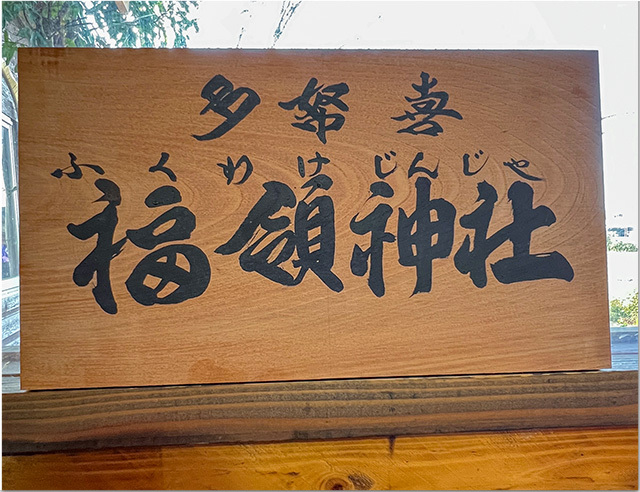 多努喜
ふくわけじんじゃ
福領神社